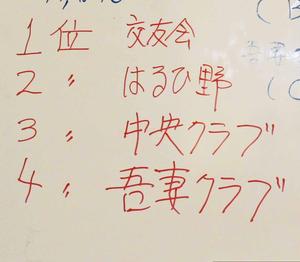 1位 交友会
2 〃 はるひ野
3 〃 中央クラブ
4 〃 吾妻クラブ